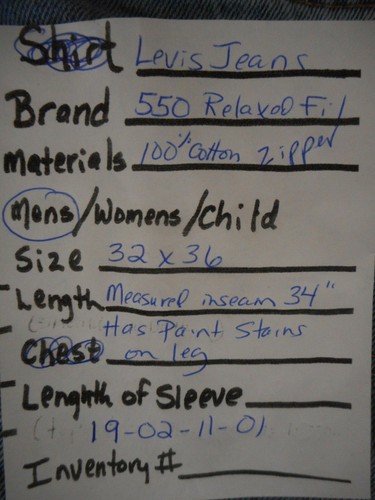 Shirt Levis Jeans
Brand 550 Relaxed Fit
Materials 100% Cotton Zipper
Mens/Womens/Child
Size 32 x 36
Length Measured inseam 34"
Has Paint Stains
Chest on leg
Lenghth of Sleeve
19-02-11-01
Inventory #